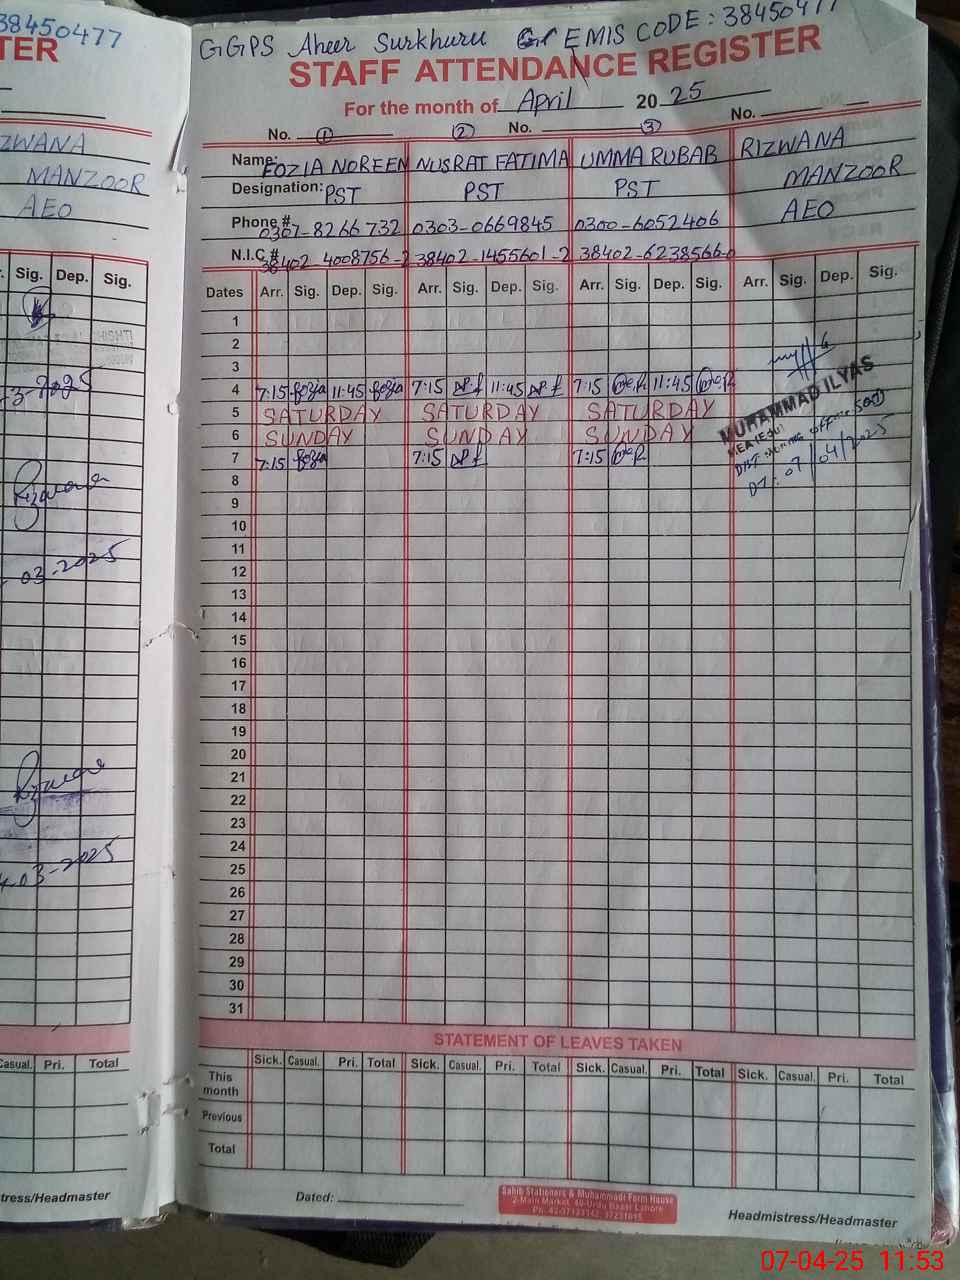 38450477
TER
ZWANA
MANZOOR
AEO
Sig. Dep. Sig.
3-2025
03-2025
03-2025
Casual. Pri. Total
tress/Headmaster
GGPS Aheer Surkhuru EMIS CODE: 38450477
STAFF ATTENDANCE REGISTER
For the month of April 20 25
No. 1 2 No. 3 No.
Name: FOZIA NOREEN NUSRAT FATIMA UMMA RUBAB RIZWANA
MANZOOR
Designation: PST PST PST AEO
Phone # 0307-8266732 0303-0669845 0300-6052406
N.I.C # 38402 4008756-2 38402-1455601-2 38402-6238566-0
Dates Arr. Sig. Dep. Sig. Arr. Sig. Dep. Sig. Arr. Sig. Dep. Sig. Arr. Sig. Dep. Sig.
1
2
3
4 7:15 fozia 11:45 fozia 7:15 11:45 7:15 11:45
5 SATURDAY SATURDAY SATURDAY
6 SUNDAY SUNDAY SUNDAY
7 7:15 fozia 7:15 7:15
MUHAMMAD ILYAS
07/04/2025
8
9
10
11
12
13
14
15
16
17
18
19
20
21
22
23
24
25
26
27
28
29
30
31
STATEMENT OF LEAVES TAKEN
Sick. Casual. Pri. Total Sick. Casual. Pri. Total Sick. Casual. Pri. Total Sick. Casual. Pri. Total
This month
Previous
Total
Dated:
Sahib Stationers & Muhammadi Form House
2-Main Market, 40-Urdu Bazar Lahore
Headmistress/Headmaster
07-04-25 11:53